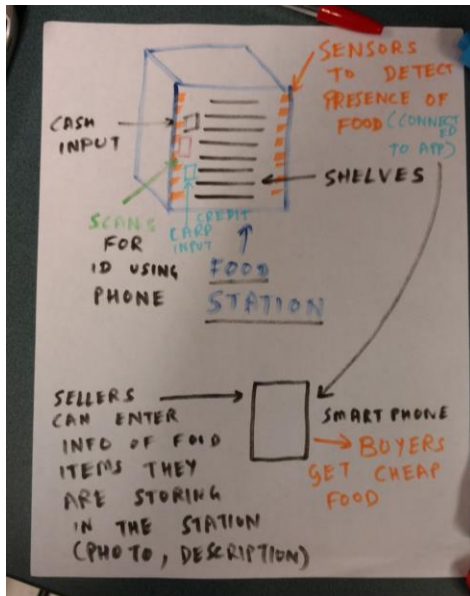 SENSORS
TO DETECT
PRESENCE OF
FOOD (CONNECTED
TO APP)
CASH
INPUT
SHELVES
SCANS
FOR
ID USING
PHONE
CREDIT
CARD
INPUT
FOOD
STATION
SELLERS
CAN ENTER
INFO OF FOOD
ITEMS THEY
ARE STORING
IN THE STATION
(PHOTO, DESCRIPTION)
SMARTPHONE
BUYERS
GET CHEAP
FOOD